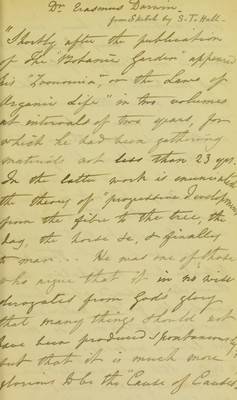 Dr Erasmus Darwin.
from Sketch by S. T. Hall.
"Shortly after the publication
of The "Botanic Garden" appeared
his "Zoonomia", or the Laws of
Organic Life" in two volumes
at intervals of two years, for
which he had been gathering
materials not less than 23 yrs.
In the latter work is enunciated
the theory of progressive Development
from the fibre to the tree, the
dog, the horse &c, & finally
to man... He was one of those
who argue that it in no wise
derogates from God's glory
that many things should not
have been produced spontaneously
but that it is much more
glorious to be the "Cause of Causes